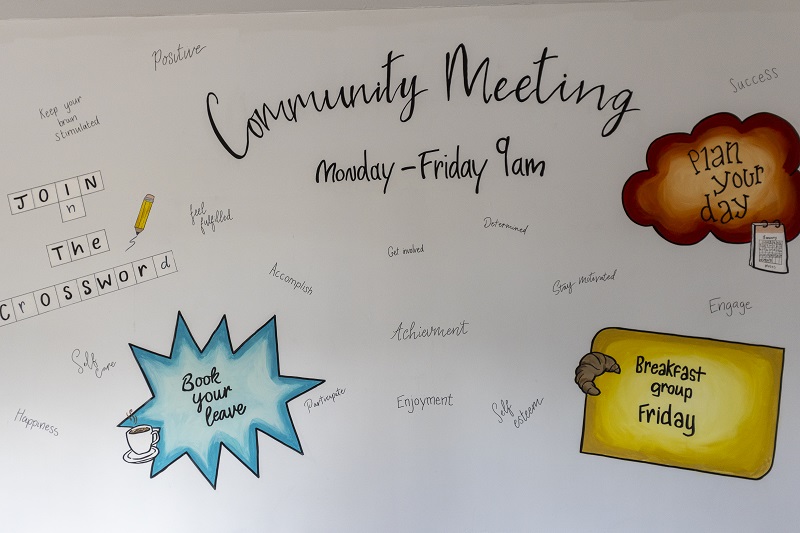 Positive
Community Meeting
Success
Keep your
brain
stimulated
Monday-Friday 9am
Plan
your
day
JOIN
n
The
Crossword
feel
fulfilled
Get involved
Determined
Accomplish
Stay motivated
Engage
Achievment
Self
Care
Book
your
leave
Participate
Enjoyment
Self
esteem
Breakfast
group
Friday
Happiness